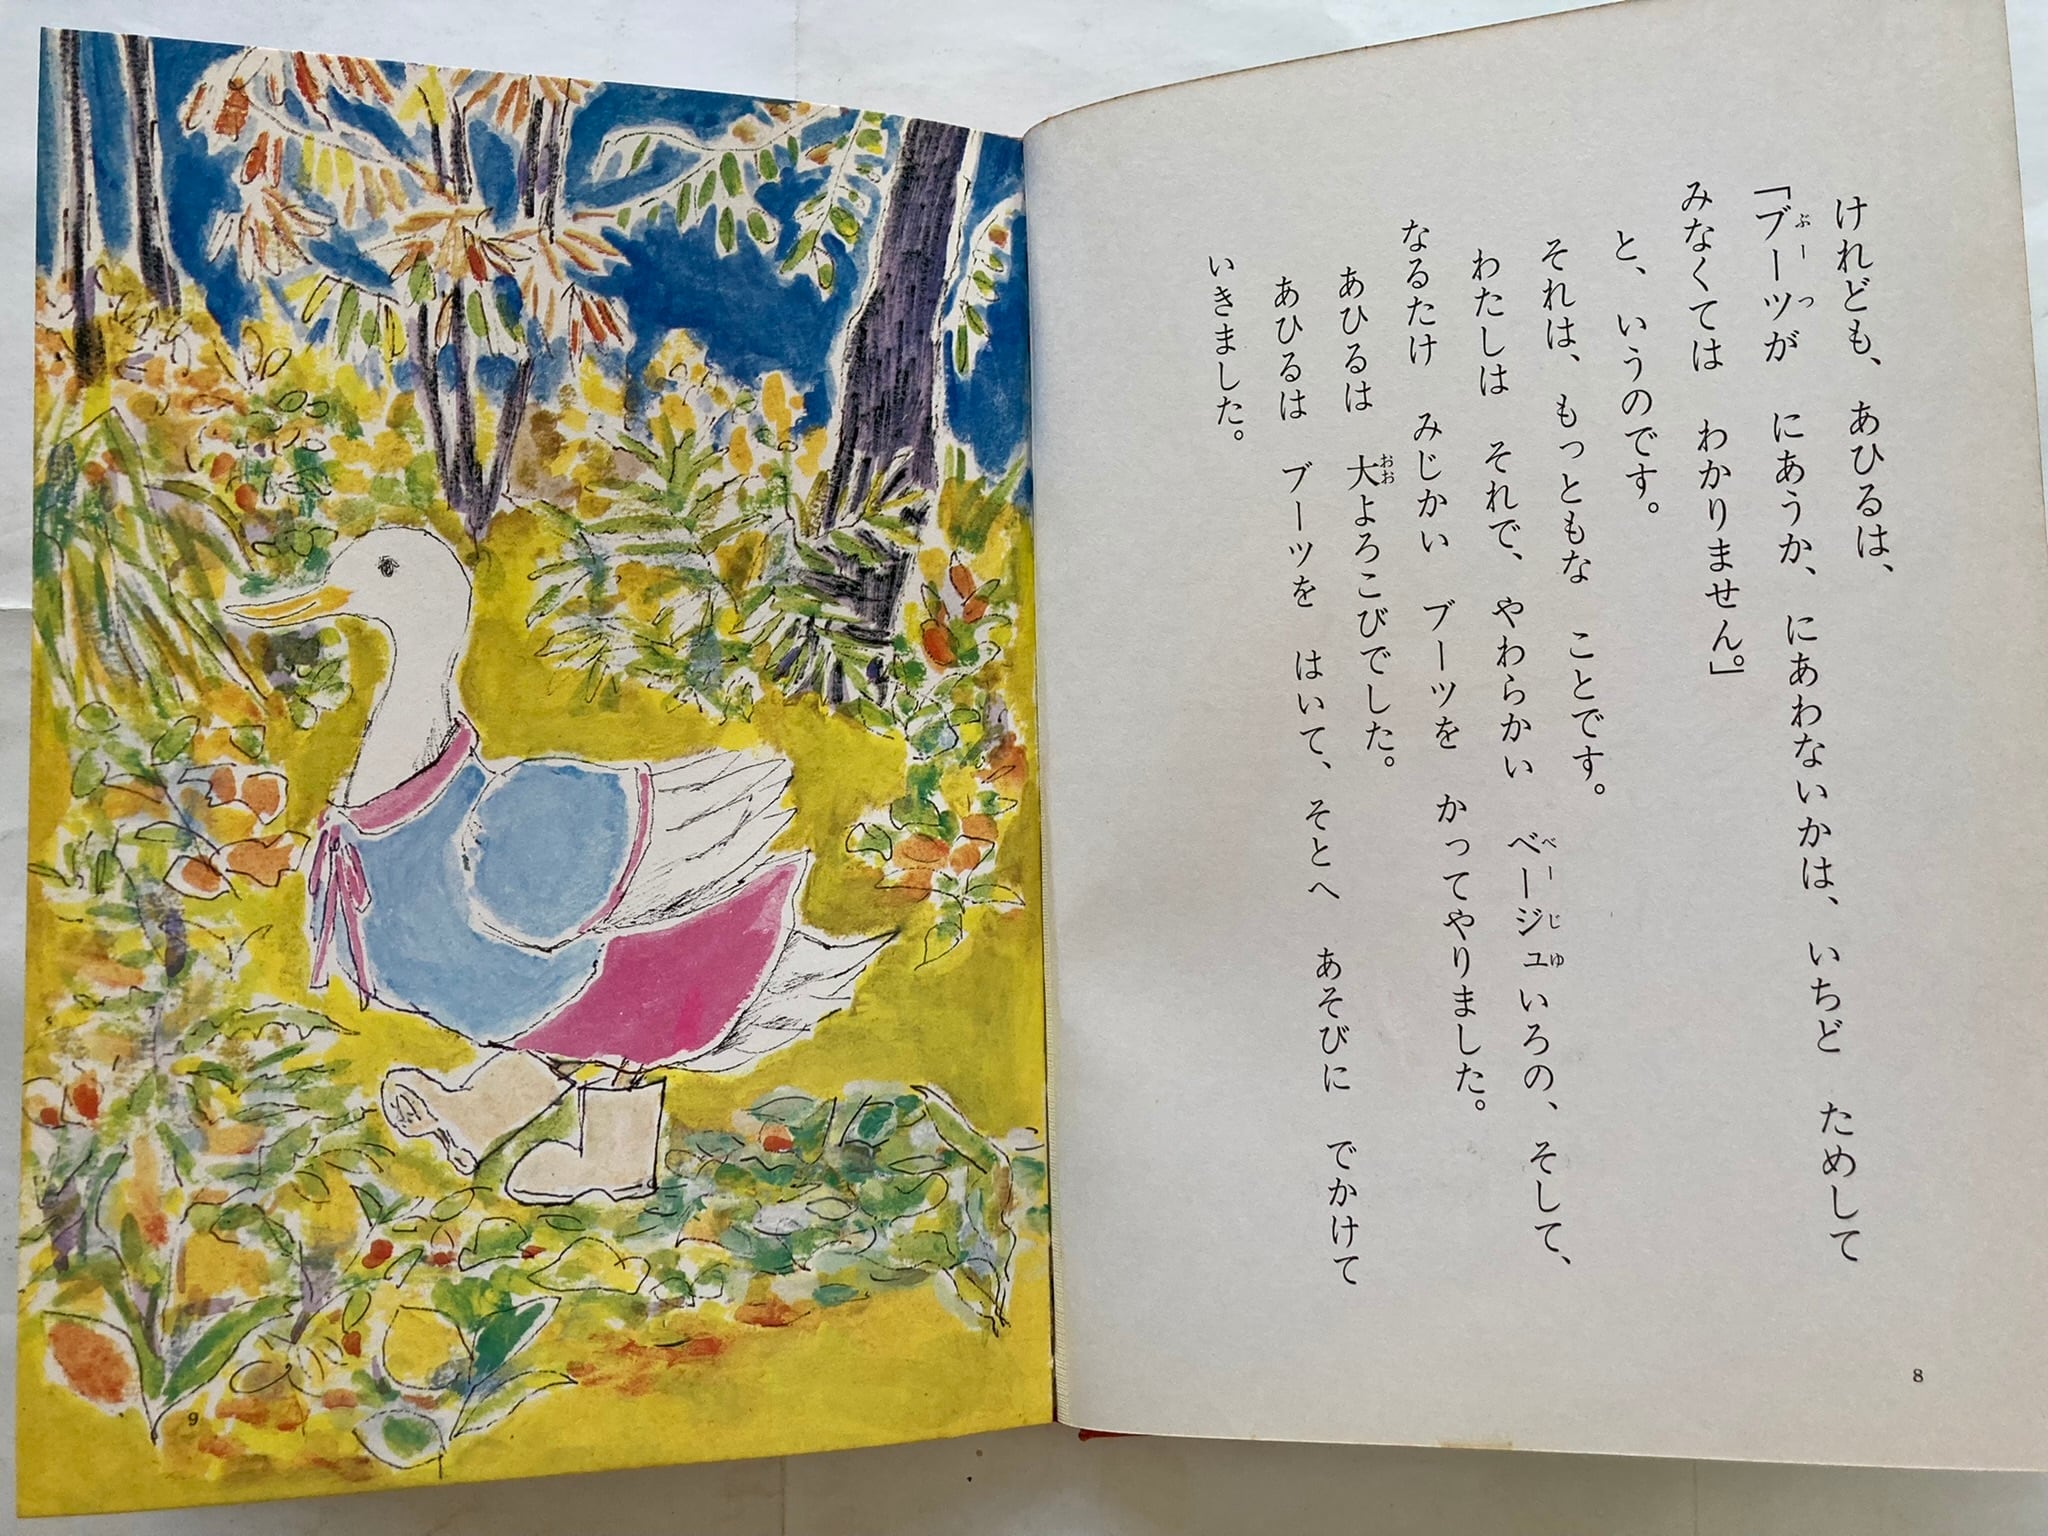 けれども、あひるは、
「ブーツが　にあうか、にあわないかは、いちど　ためして
みなくては　わかりません。」
と、いうのです。
それは、もっともな　ことです。
わたしは　それで、やわらかい　ベージュいろの、そして、
なるたけ　みじかい　ブーツを　かってやりました。
あひるは　大よろこびでした。
あひるは　ブーツを　はいて、そとへ　あそびに　でかけて
いきました。
ぶーつ
べーじゅ
おお
8
9